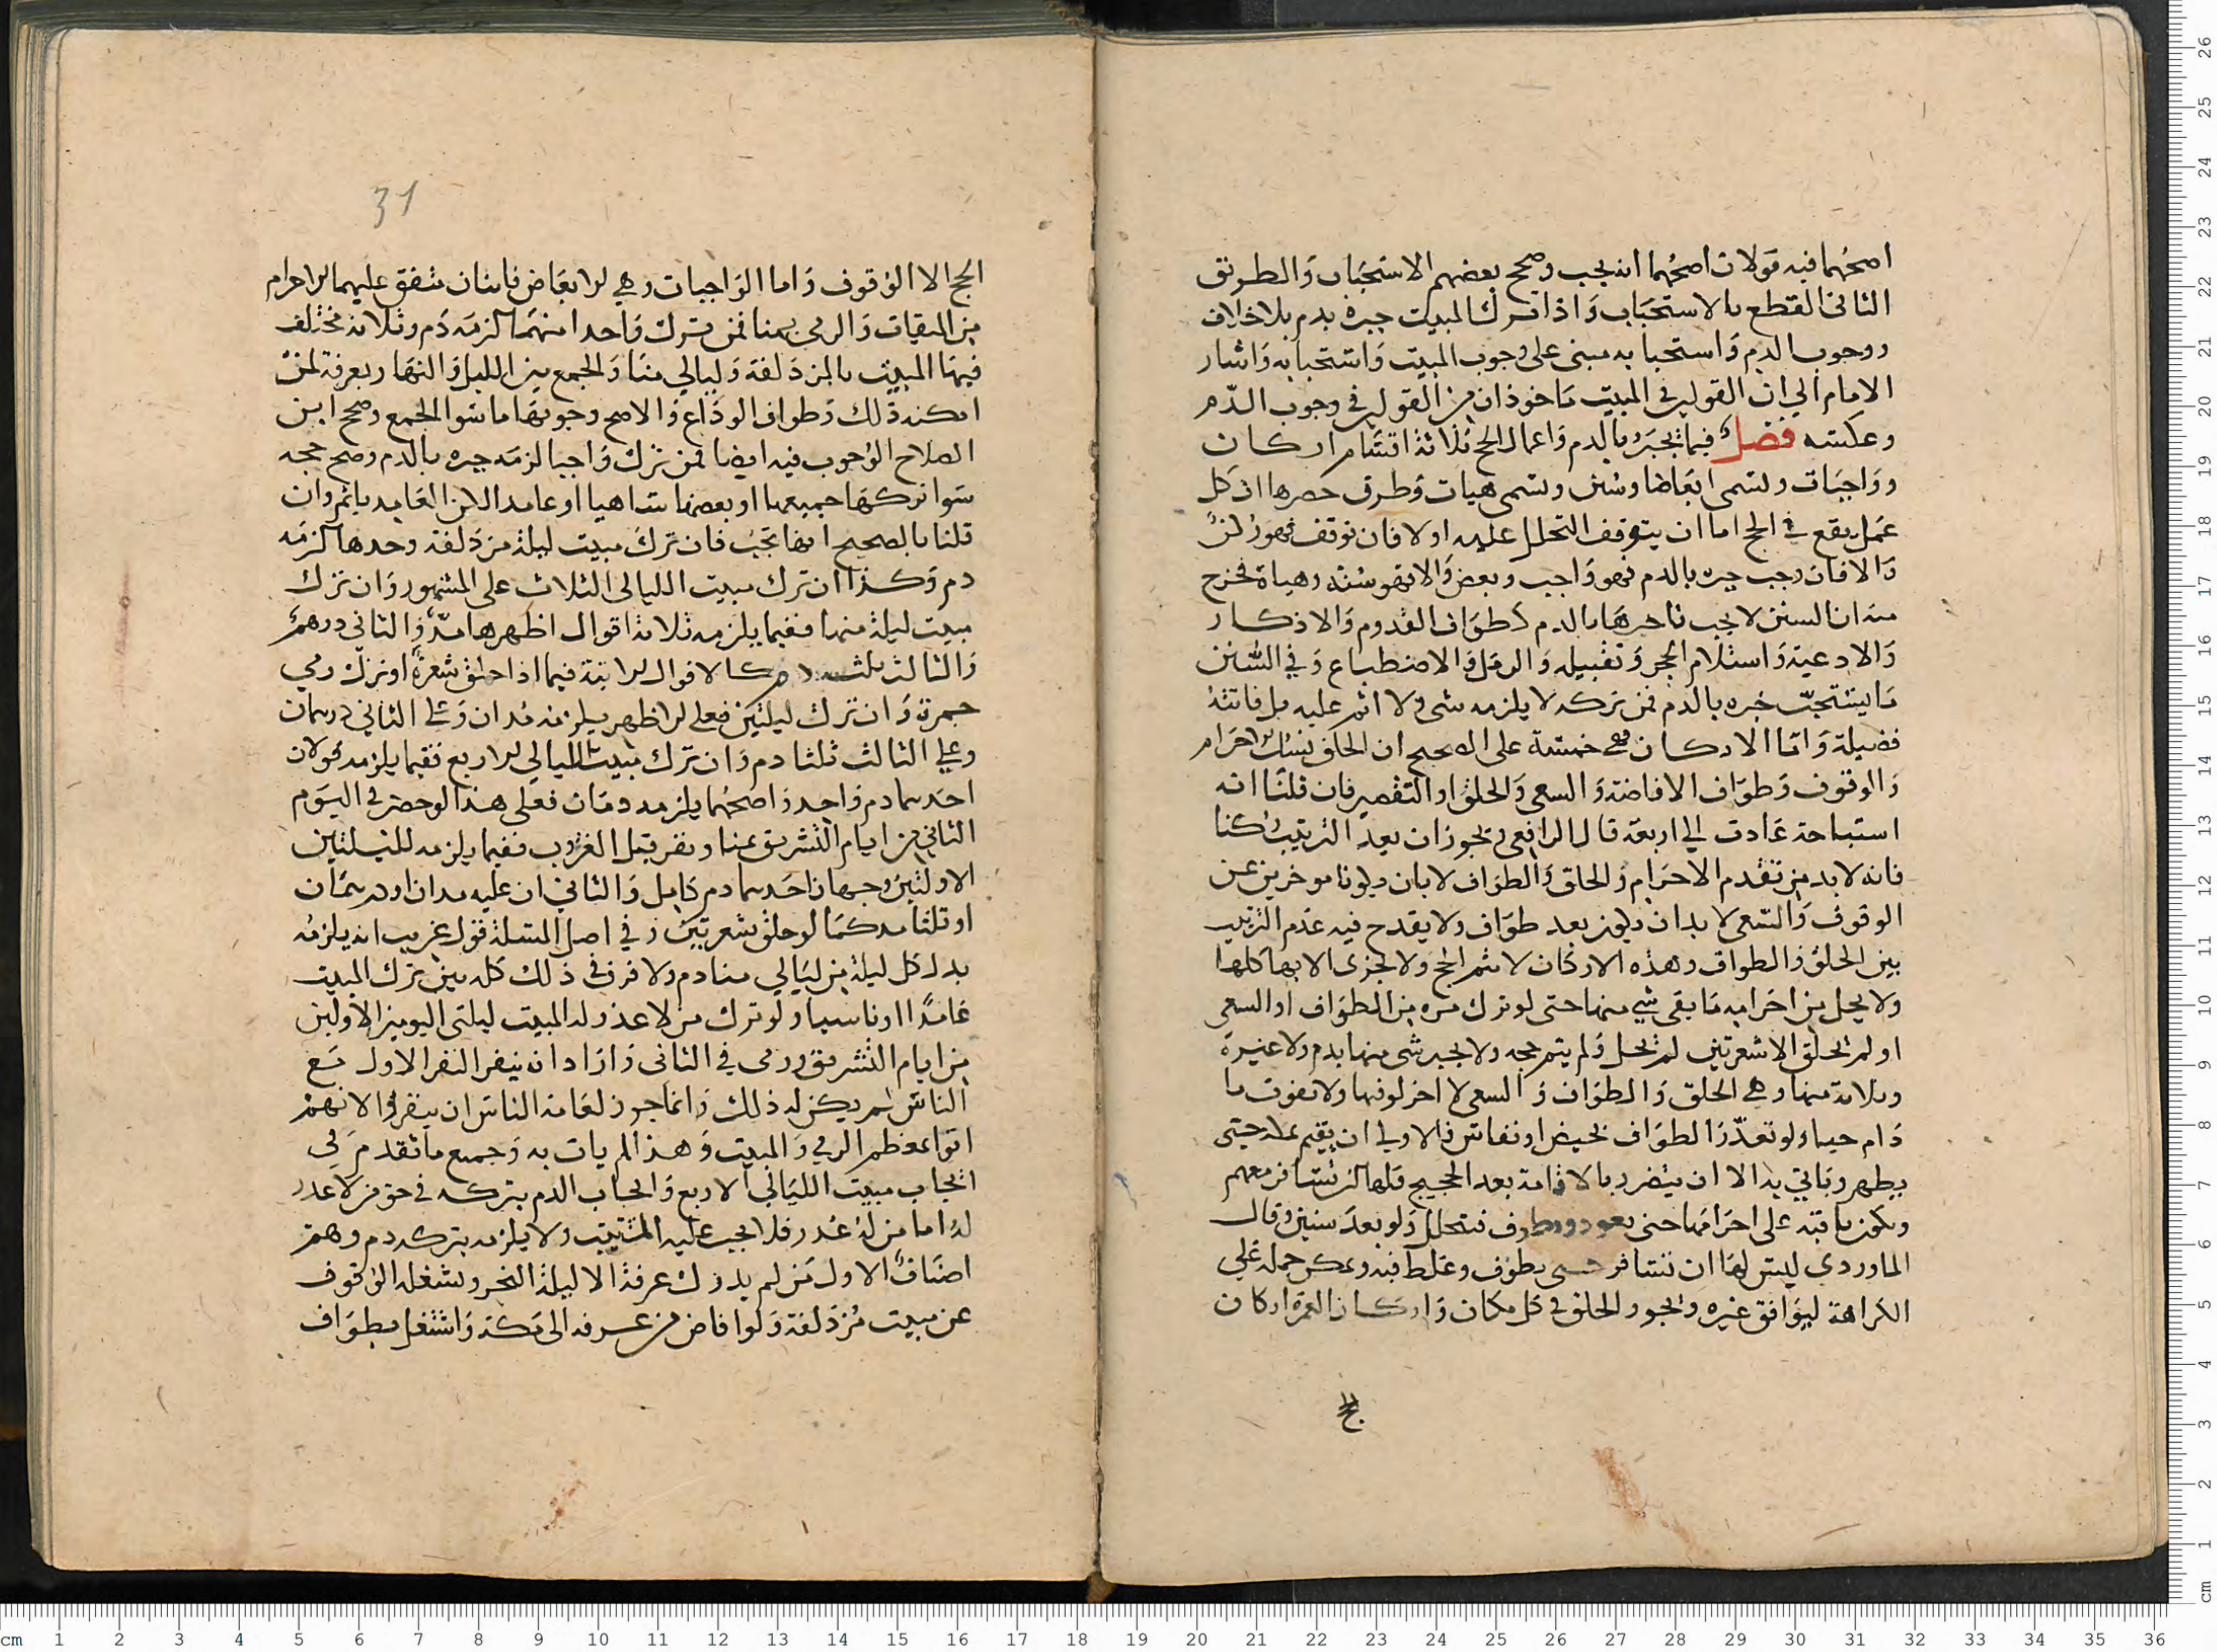 اصحهما فيه قولان اصحهما انه يجب وصحح بعضهم الاستحباب والطريق
الثاني القطع بالاستحباب واذا ترك المبيت جبره بدم بلا خلاف
ووجوب الدم واستحبابه مبنى على وجوب المبيت واستحبابه واشار
الامام الي ان القولين في المبيت ماخوذان من القولين في وجوب الدم
وعكسه فصل فيما يجبر بالدم واعمال الحج ثلاثة اقسام اركان
وواجبات وتسمى ابعاضا وسنن وتسمى هيات وطرق حصرها ان كل
عمل يقع في الحج اما ان يتوقف التحلل عليه اولا فان توقف فهو ركن
والا فان وجب جبره بالدم فهو واجب وبعض والا فهو سنة وهياة فخرج
منه ان السنن لا يجب جبرها بالدم كطواف القدوم والاذكار
والادعية واستلام الحجر وتقبيله والرمل والاضطباع وفي السنن
ما يستحب جبره بالدم فمن تركه لا يلزمه شى ولا اثم عليه بل فاتته
فضيلة واما الاركان فهي خمسة على الصحيح ان الحلق نسك احرام
والوقوف وطواف الافاضة والسعي والحلق او التقصير فان قلنا انه
استباحة عادت الي اربعة قال الرافعي ويجوز ان يعد الترتيب ركنا
فانه لا بد من تقدم الاحرام والحلق والطواف لابان يكونا موخرين عن
الوقوف والسعى لا بد ان يكون بعد طواف ولا يقدح فيه عدم الترتيب
بين الحلق والطواف وهذه الاركان لا يتم الحج ولا يجزى الا بها كلها
ولا يحل من احرامه ما بقى شي منها حتى لو ترك مره من الطواف او السعى
او لم يحلق الا شعرتين لم يحل ولم يتم حجه ولا يجبر شى منها بدم ولا غيره
وثلاثة منها وهي الحلق والطواف والسعى لا اخر لوقتها ولا تفوت ما
دام حيا ولو تعذر الطواف لحيض او نفاس فالاولي ان يقيم بمكه حتى
يطهر وياتي به الا ان ينضر بالاقامة بعد الحجيج فلها ان تسافر معهم
وتكون باقيه على احرامها حتى تعود وتطوف فتتحلل ولو بعد سنين وقال
الماوردي ليس لها ان تسافر حتى تطوف وغلط فيه ويمكن حمله على
الكراهة ليوافق غيره ويجوز الحلق في كل مكان واركان العمرة اركان
31
الحج الا الوقوف واما الواجبات وهي الابعاض فاثنان متفق عليهما الاحرام
من الميقات والرمي بمنا فمن ترك واحدا منهما لزمه دم وثلاثة مختلف
فيها المبيت بالمزدلفة وليالي منا والجمع بين الليل والنهار بعرفة لمن
امكنه ذلك وطواف الوداع والاصح وجوبها ما سوا الجمع وصحح ابن
الصلاح الوجوب فيه ايضا فمن ترك واجبا لزمه جبره بالدم وصح حجه
سوا تركها جميعها او بعضها ساهيا او عامدا لكن العامد ياثم وان
قلنا بالصحيح انها تجب فان ترك مبيت ليلة مزدلفة وحدها لزمه
دم وكذا ان ترك مبيت الليالى الثلاث على المشهور وان ترك
مبيت ليلة منها ففيما يلزمه ثلاثة اقوال اظهرها مد والثاني درهم
والثالث ثلث دم كالاقوال الاتية فيما اذا حلق شعرة او ترك رمي
جمرة وان ترك ليلتين فعلى الاظهر يلزمه مدان وعلى الثاني درهمان
وعلى الثالث ثلثا دم وان ترك مبيت الليالي الاربع ففيما يلزمه قولان
احدهما دم واحد واصحهما يلزمه دمان فعلى هذا لو حضر في اليوم
الثاني من ايام التشريق بمنا ونفر قبل الغروب ففيما يلزمه لليلتين
الاولتين وجهان احدهما دم كامل والثاني ان عليه مدان او درهمان
او ثلثا مد كما لو حلق شعرتين وفي اصل المسلة قول غريب انه يلزمه
بدل كل ليلة من ليالي منا دم ولا فرق في ذلك كله بين ترك المبيت
عامدا او ناسيا ولو ترك من لا عذر له المبيت ليلتى اليومين الاولين
من ايام التشريق ورمى في الثانى واراد ان ينفر النفر الاول مع
الناس لم يكن له ذلك وانما جوز لعامة الناس ان ينفروا لانهم
اتوا بمعظم الرمي والمبيت وهذا لم يات به وجميع ما تقدم في
ايجاب مبيت الليالي الاربع وايجاب الدم بتركه في حق من لا عذر
له اما من له عذر فلا يجب عليه المبيت ولا يلزمه بتركه دم وهم
اصناف الاول من لم يدرك عرفة الا ليلة النحر ويشغله الوقوف
عن مبيت مزدلفة ولو افاض من عرفه الى مكة واشتغل بطواف